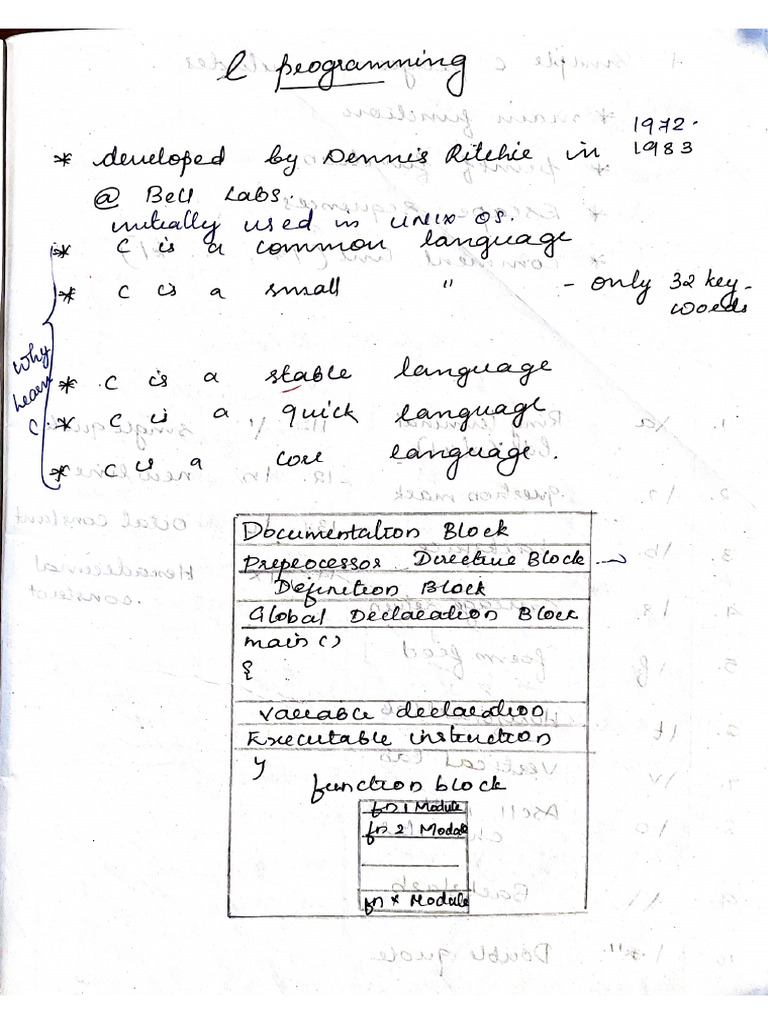 C programming
1972.
* developed by Dennis Ritchie in 1983
@ Bell Labs.
initially used in UNIX OS.
* C is a common language
* C is a small " - only 32 key-
words
Why learn C
* C is a stable language
* C is a quick language
* C is a core language.
Documentation Block
Preprocessor Directive Block
Definition Block
Global Declaration Block
main()
{
Variable declaration
Executable instruction
}
function block
fn 1 Module
fn 2 Module
fn x Module